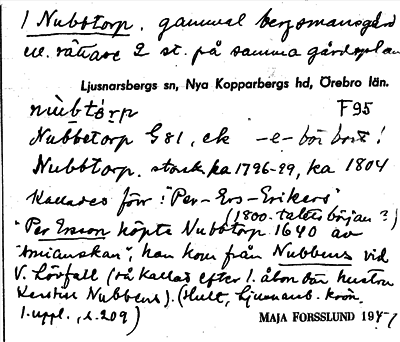 1 Nubbtorp. gammal bergsmansgård
el. rättare 2 st. på samma gårdsplan
Ljusnarsbergs sn, Nya Kopparbergs hd, Örebro län.
nubtorp F95
Nubbetorp G81, ek -e- bör bort!
Nubbtorp. storsk.ka 1796-99, ka 1804
Kallades förr: "Per-Ers-Erikers"
(1800-talets början?)
"Per Ersson köpte Nubbtorp 1640 av
"Smianskan", han kom från Nubbens vid
V. Lövfall (så kallat efter 1. åbon där hustru
Kerstin Nubbens). (Hult, Ljusnarsb. krön.
1. uppl., s. 209)
MAJA FORSSLUND 1947